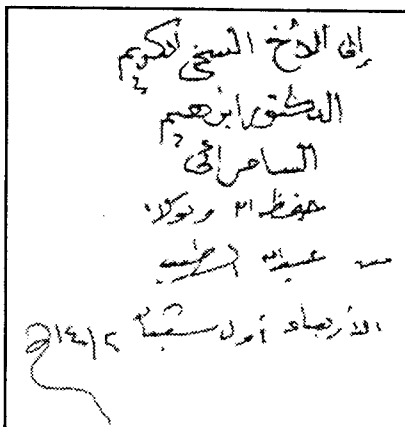 إلى الأخ السخي الكريم
الدكتور ابرهيم
السامرائي
حفظه الله وتولاه
من عبدالله الطيب
الأربعاء أول شعبان ١٤١٢هـ